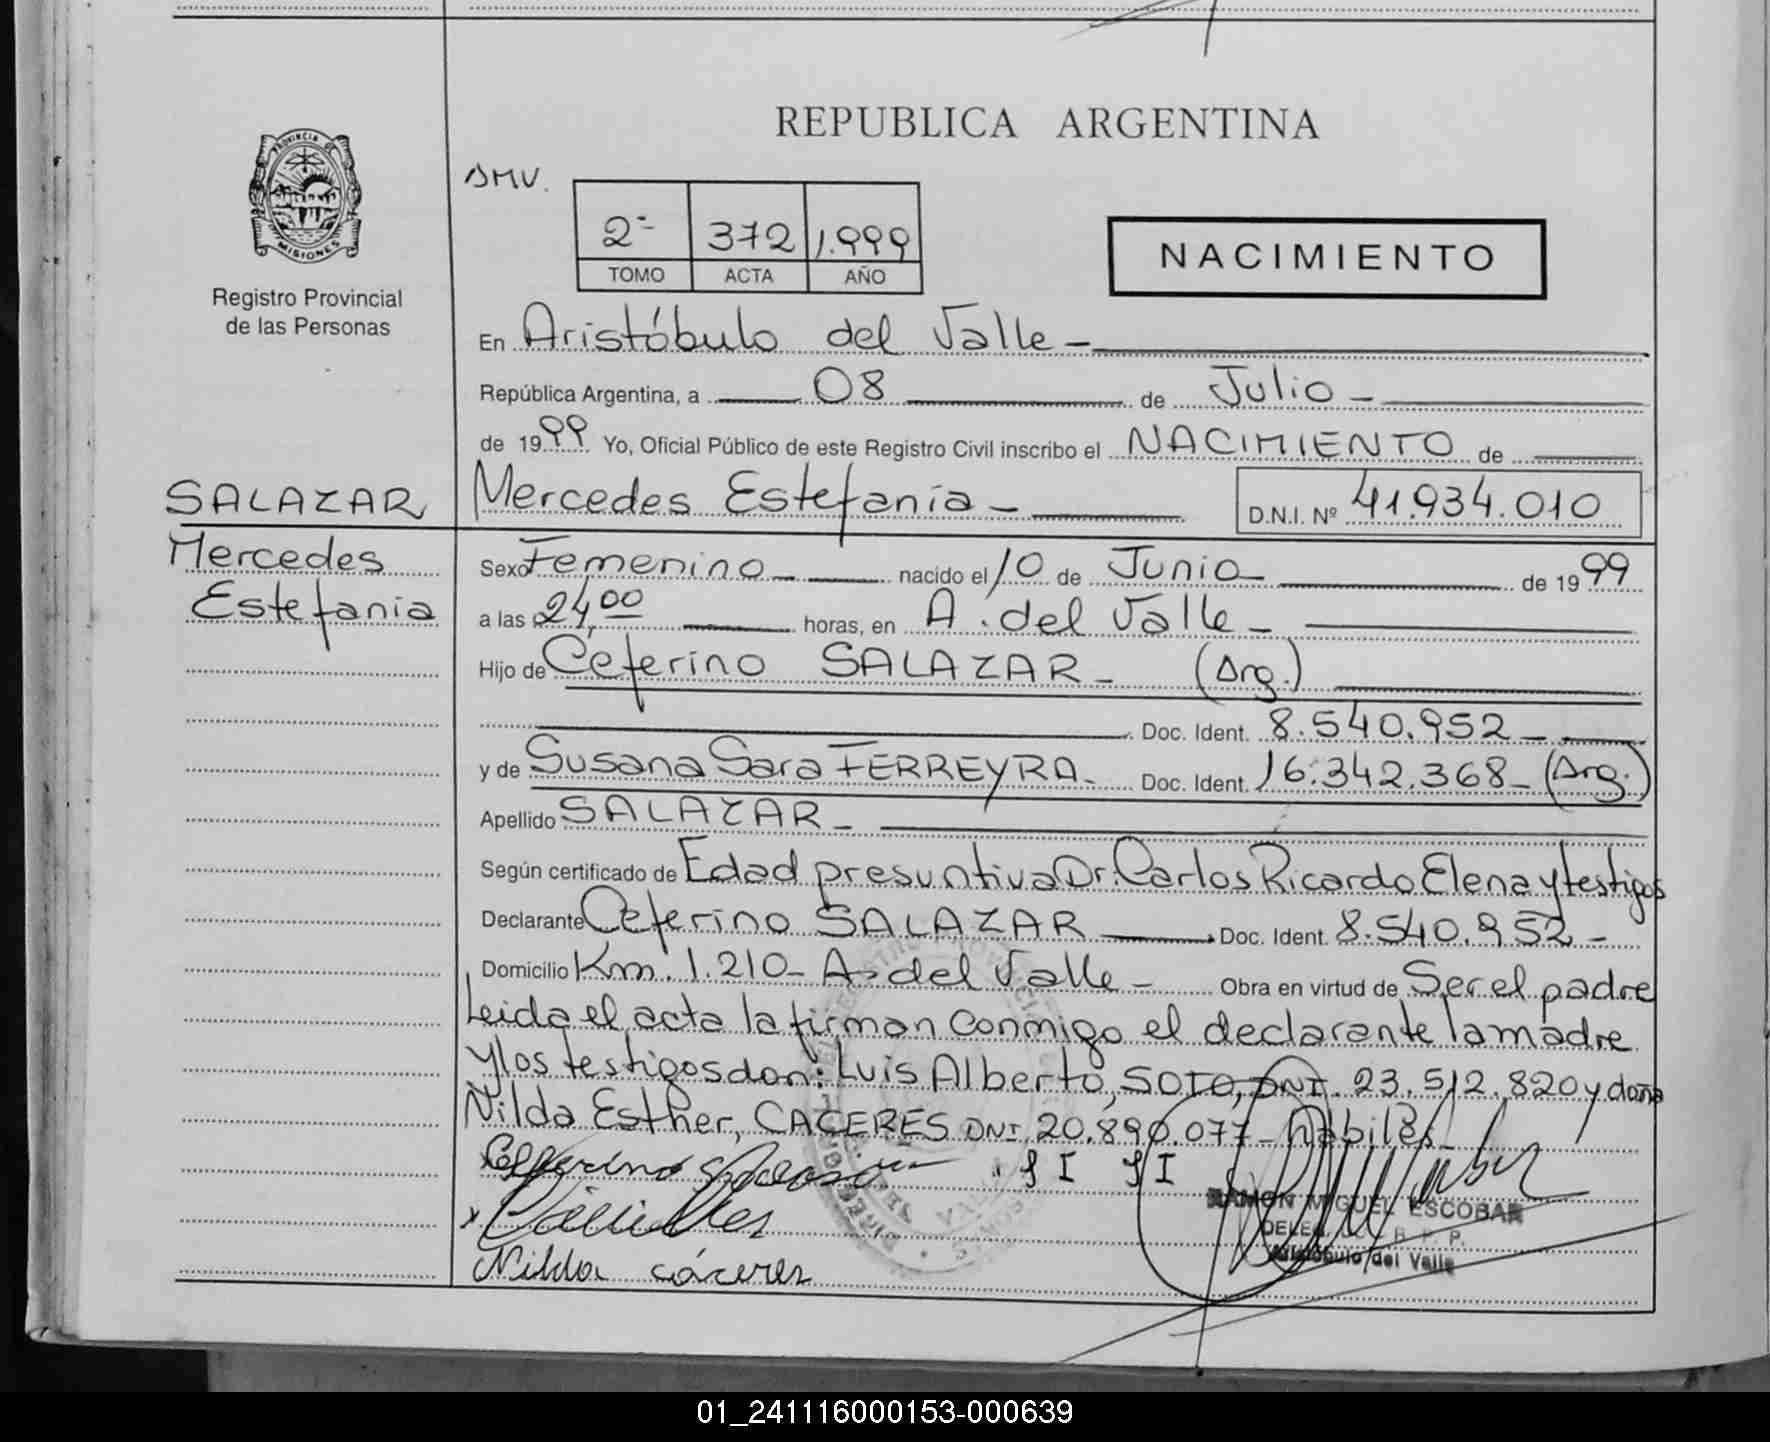 REPUBLICA ARGENTINA
PROVINCIA DE
MISIONES
Registro Provincial
de las Personas
SMV.
2- 372 1.999
TOMO ACTA AÑO
NACIMIENTO
En Aristóbulo del Valle -
República Argentina, a 08 de Julio -
de 1999 Yo, Oficial Público de este Registro Civil inscribo el NACIMIENTO de
SALAZAR Mercedes Estefanía - D.N.I. Nº 41.934.010
Mercedes Sexo Femenino - nacido el 10 de Junio de 1999
Estefanía a las 24,00 horas, en A. del Valle -
Hijo de Ceferino SALAZAR - (Arg.)
Doc. Ident. 8.540.952 -
y de Susana Sara FERREYRA - Doc. Ident. 16.342.368 - (Arg.)
Apellido SALAZAR -
Según certificado de Edad presuntiva Dr. Carlos Ricardo Elena y testigos
Declarante Ceferino SALAZAR Doc. Ident. 8.540.952 -
Domicilio Km. 1.210 - A. del Valle - Obra en virtud de Ser el padre
Leida el acta la firman conmigo el declarante la madre
y los testigos don: Luis Alberto, SOTO, DNI. 23.512.820 y doña
Nilda Esther, CACERES DNI. 20.890.077 - hábiles
SI SI
RAMON MIGUEL ESCOBAR
R. P. P.
Aristóbulo del Valle
Nilda cáceres
01_241116000153-000639